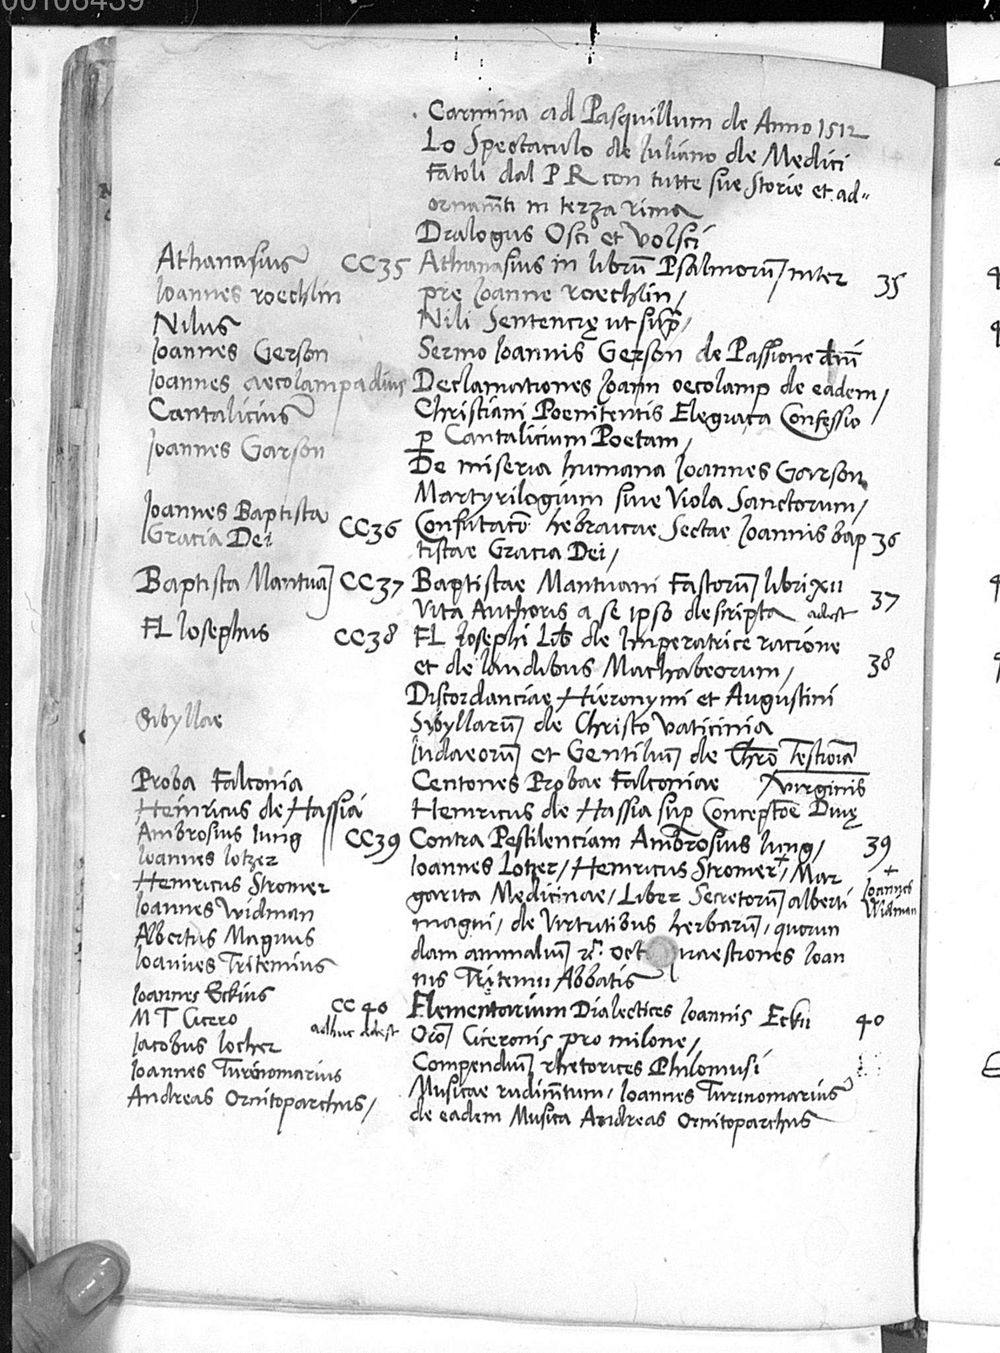 00106439
Carmina ad Pasquillum de Anno 1512
Lo Spectaculo de Iuliano de Medici
fatoli dal P R con tutte sue Storie et ad-
ornamti in terza rima
Dialogus Osci et Volsci
Athanasius CC35 Athanasius in librum Psalmorum/inter 35
Ioannes roechlin prę Ioanne roechlin/
Nilus Nili Sentencię ut sup/
Ioannes Gerson Sermo Ioannis Gerson de Passione dni
Ioannes aecolampadius Declamationes Ioann oecolamp de eadem/
Cantalicius Christiani Poenitentis Elegiaca Confessio
p Cantalicium Poetam/
Ioannes Garson De miseria humana Ioannes Garson
Martyrilogium sive Viola Sanctorum/
Ioannes Baptista
Gracia Dei CC36 Confutatio hebraicae Sectae Ioannis bap 36
tistae Gracia Dei/
Baptista Mantuan CC37 Baptistae Mantuani Fastorum libri xii 37
Vita Authoris a se ipso descripta adest
FL Iosephus CC38 FL Iosephi Lib de Imperatrice racione 38
et de laudibus Machabeorum/
Discordanciae Hieronymi et Augustini
Sibyllae Sybyllarum de Christo Vaticinia
Iudaeorum et Gentilium de Chro Testimonia
Proba Falconia Centones Probae Falconiae Virginis
Heinricus de Hassia Henricus de Hassia sup Conceptoe Divę
Ambrosius Iung CC39 Contra Pestilenciam Ambrosius Iung/ 39
Ioannes lotzer Ioannes Lotzer/Henricus Stromer+/Mar + Ioannes Widman
Heinricus Stromer garita Medicinae/Liber Secretorum alberti
Ioannes Widman magni/de Virtutibus herbarum/quorun
Albertus Magnus dam animalium rc. Octo quaestiones Ioan
Ioannes Tritemius nis Tritemii Abbatis
Ioannes Eckius CC 40 Elementarium Dialectices Ioannis Eckii 40
M T Cicero adhuc adest Oro Ciceronis pro milone/
Iacobus locher Compendium rhetorices Philomusi
Ioannes Turinomarius Musicae rudimtum/Ioannes Turinomarius
Andreas Ornitoparchus/ de eadem Musica Andreas Ornitoparchus